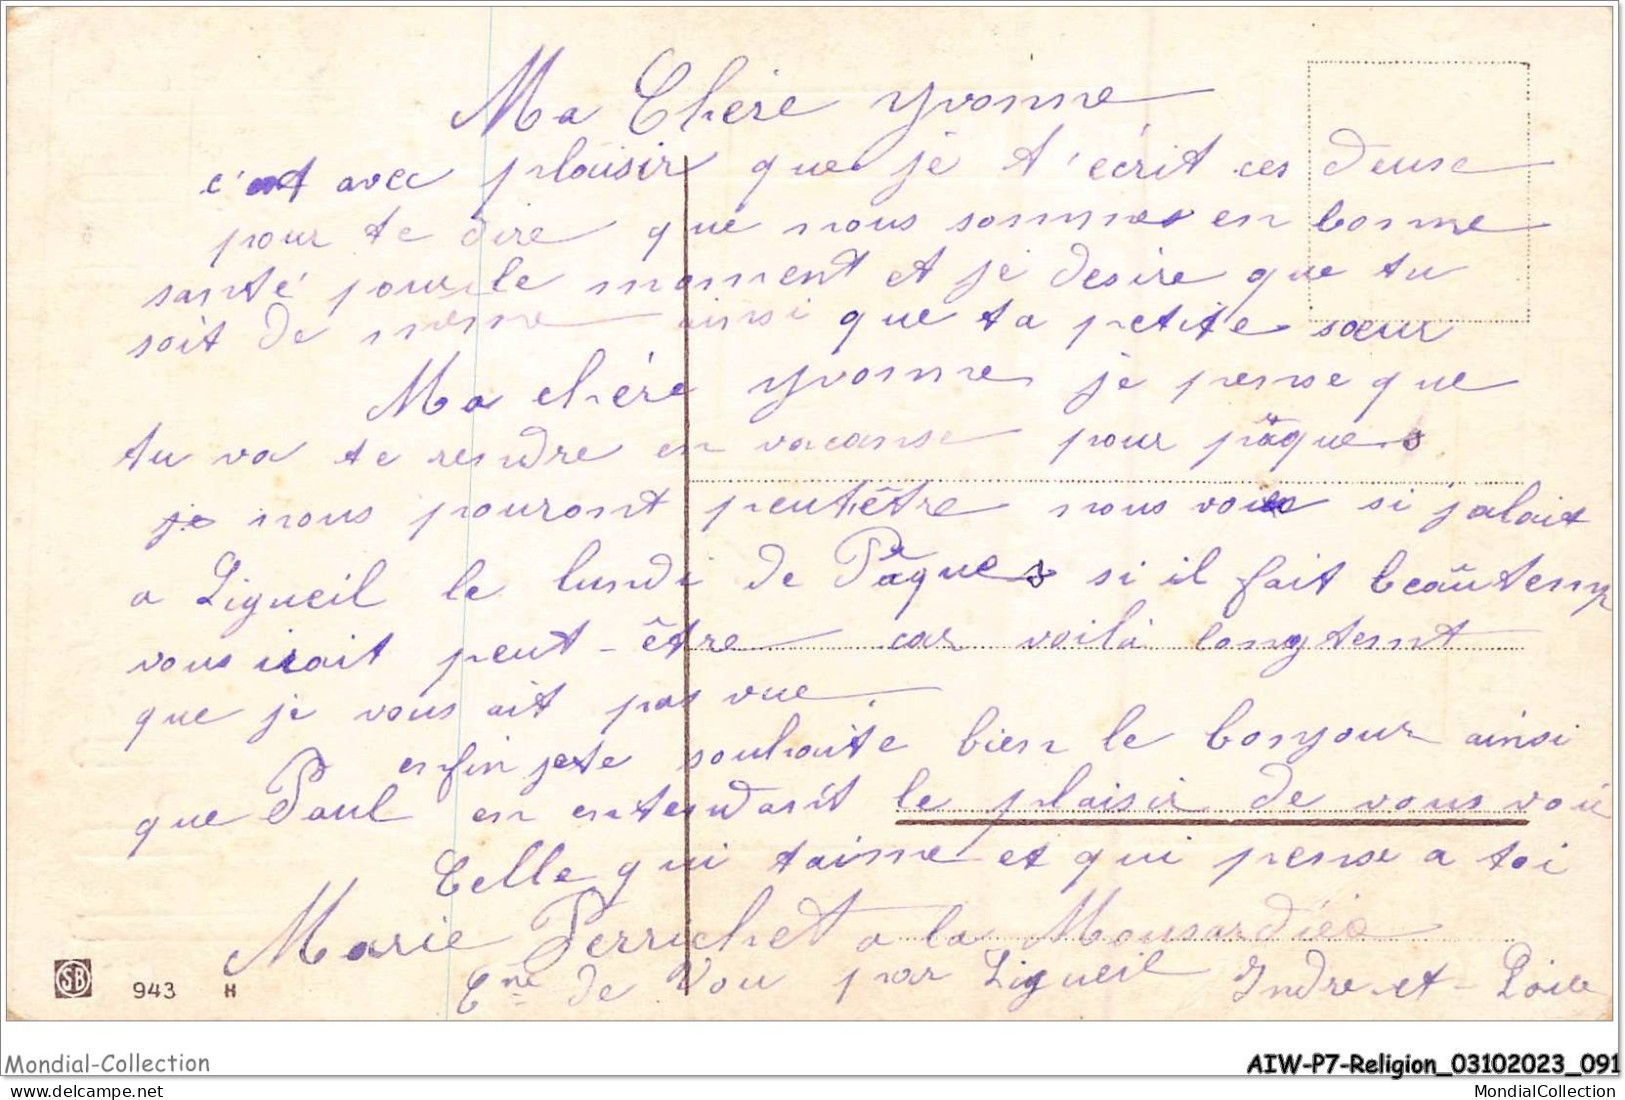 Ma Chère Yvonne
c'est avec plaisir que je t'écrit ces deuse
pour te dire que nous sommes en bonne
santé pour le moment et je desire que tu
soit de meme ainsi que ta petite sœur
Ma chère Yvonne je pense que
tu va te rendre en vacanse pour pâques
je nous pouront peutêtre nous voir si jalait
a Ligueil le lundi de Pâques si il fait beautemp
vous irait peut-être car voilà longtemt
que je vous ait pas vue.
enfin jete souhaite bien le bonjour ainsi
que Paul en entendant le plaisir de vous voir
Celle qui taime et qui pense a toi
Marie Perrichet a la Mousardiée
Cne de Vou par Ligueil Indre-et-Loire
SB 943 H
Mondial-Collection AIW-P7-Religion_03102023_091
MondialCollection